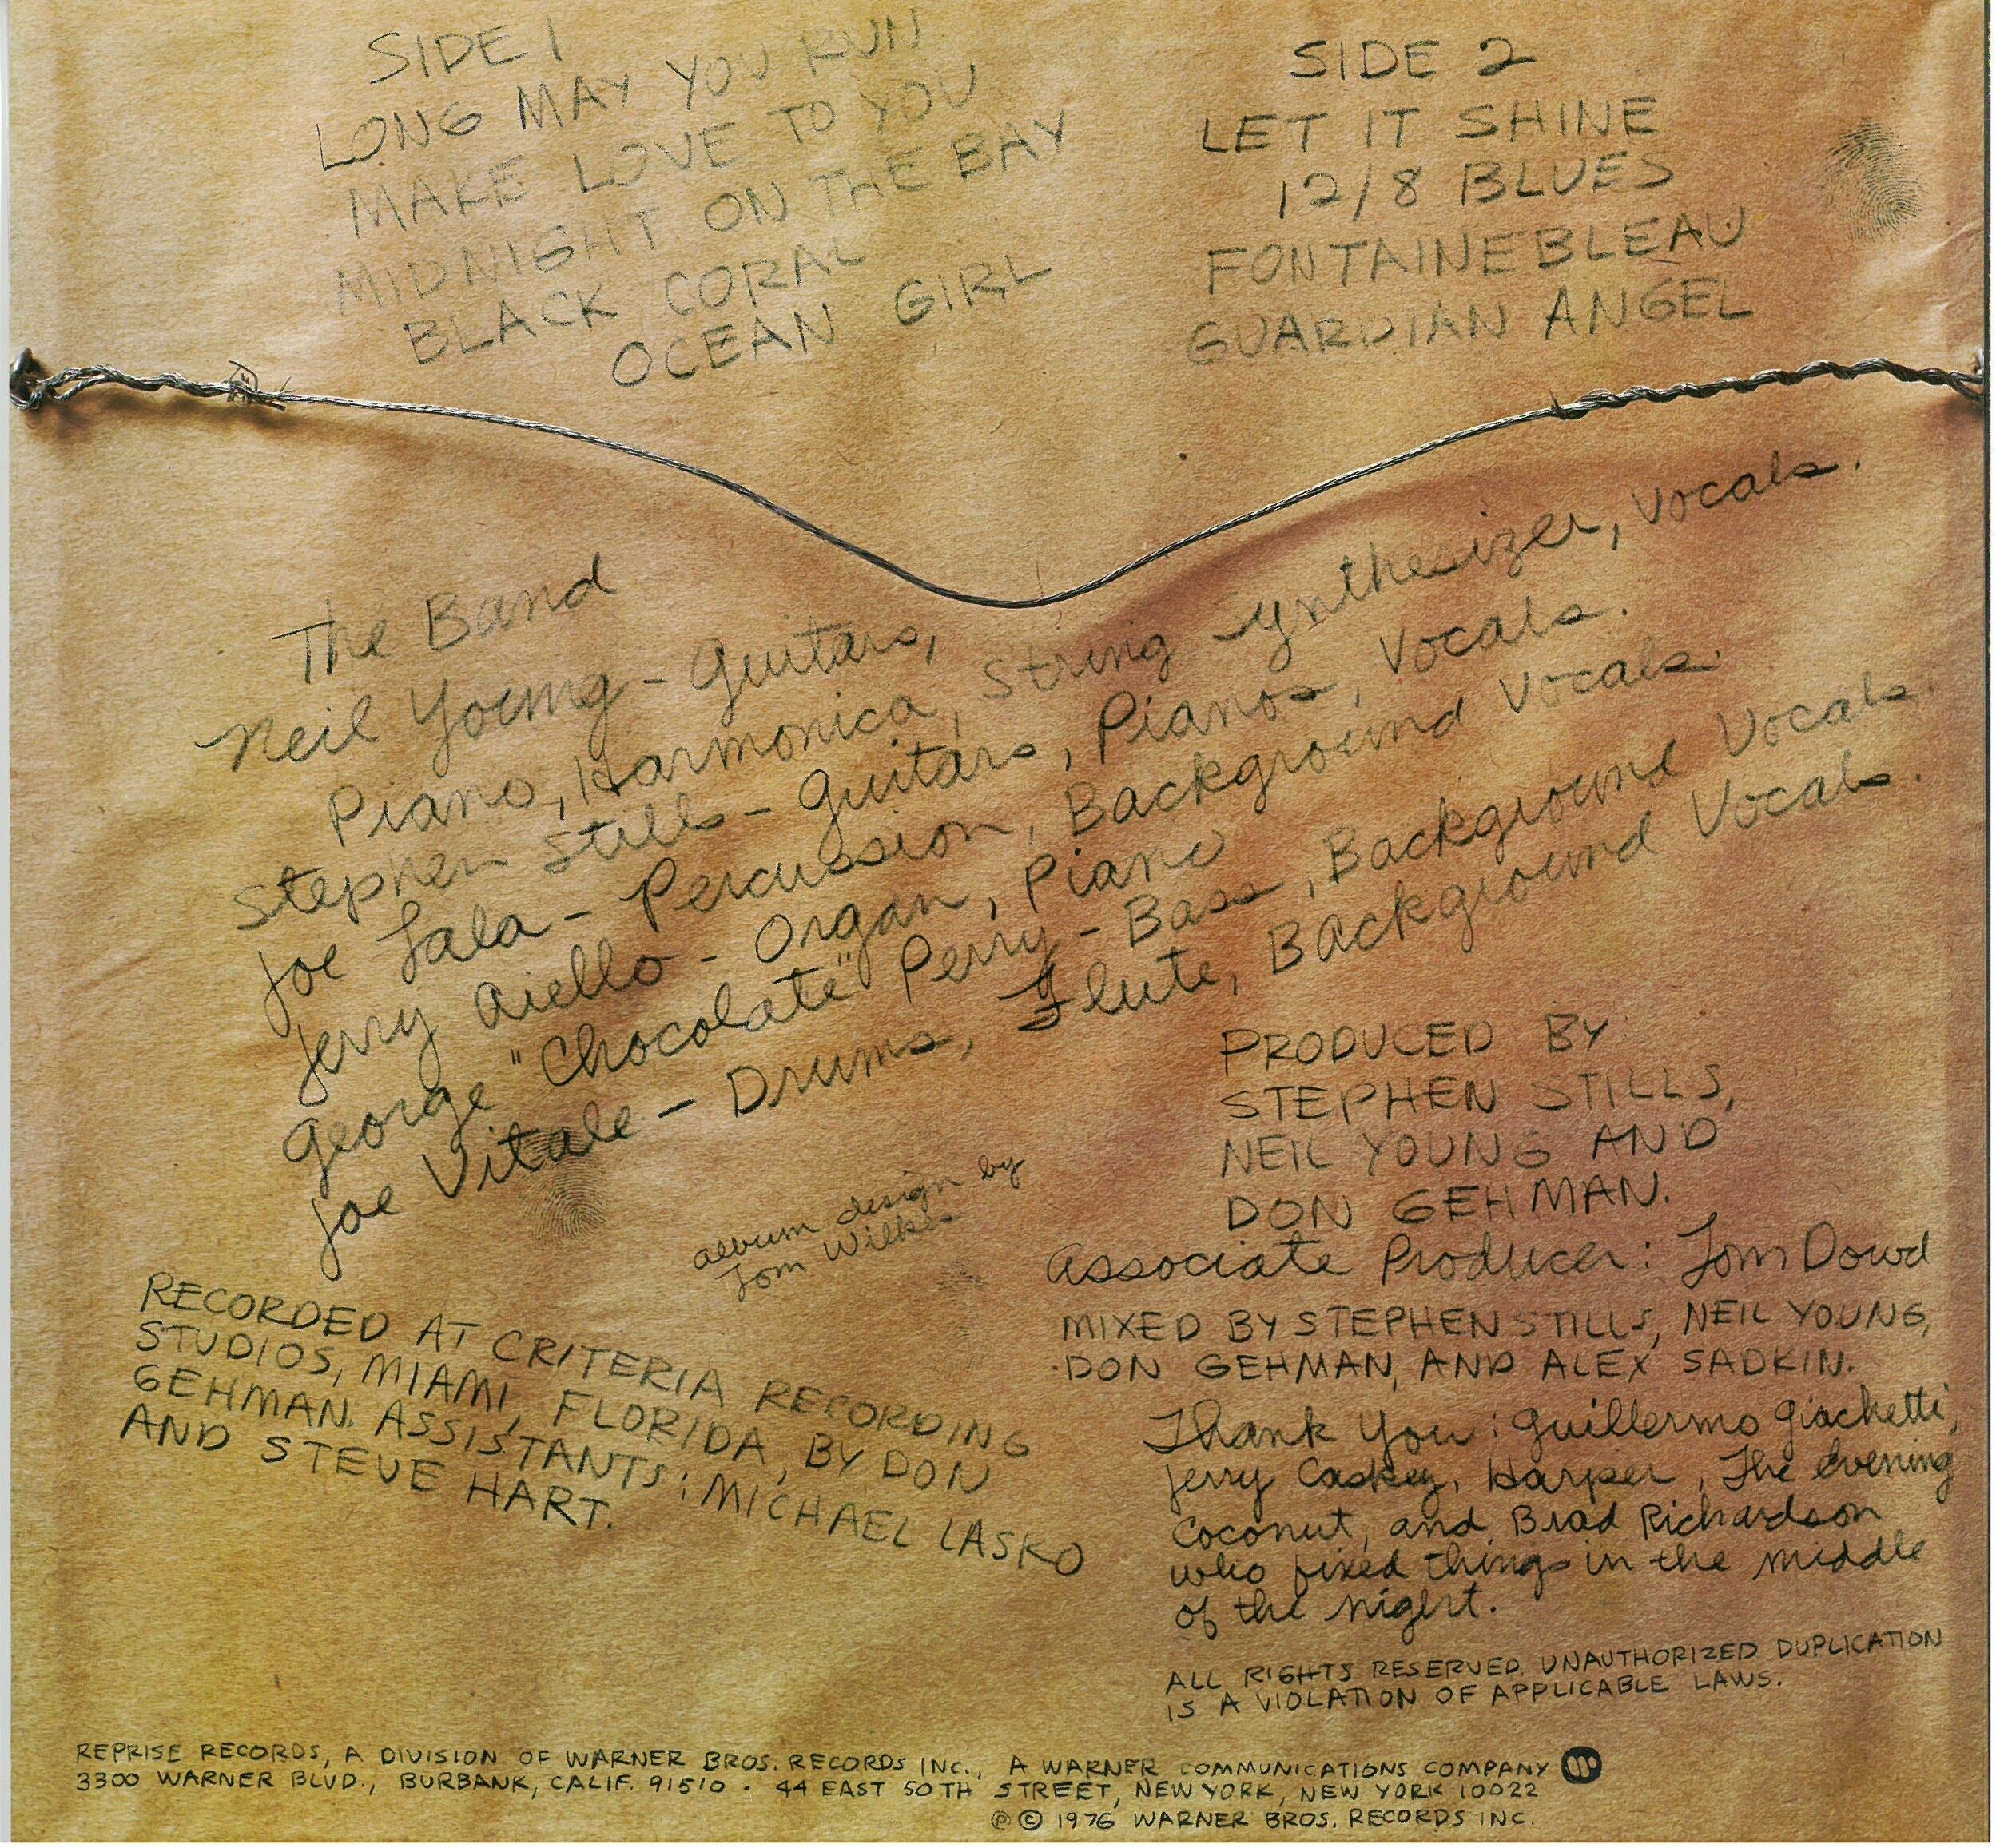 SIDE 1
LONG MAY YOU RUN
MAKE LOVE TO YOU
MIDNIGHT ON THE BAY
BLACK CORAL
OCEAN GIRL
SIDE 2
LET IT SHINE
12/8 BLUES
FONTAINEBLEAU
GUARDIAN ANGEL
The Band
Neil Young - Guitars,
Piano, Harmonica, String Synthesizer, Vocals.
Stephen Stills - Guitars, Pianos, Vocals.
Joe Lala - Percussion, Background Vocals.
Jerry Aiello - Organ, Piano
George "Chocolate" Perry - Bass, Background Vocals.
Joe Vitale - Drums, Flute, Background Vocals.
album design by
Tom Wilkes
RECORDED AT CRITERIA RECORDING
STUDIOS, MIAMI, FLORIDA, BY DON
GEHMAN. ASSISTANTS: MICHAEL LASKO
AND STEVE HART.
PRODUCED BY
STEPHEN STILLS,
NEIL YOUNG AND
DON GEHMAN.
Associate Producer: Tom Dowd
MIXED BY STEPHEN STILLS, NEIL YOUNG,
DON GEHMAN, AND ALEX SADKIN.
Thank You: Guillermo Giachetti,
Jerry Caskey, Harper, The Evening
Coconut, and Brad Richardson
who fixed things in the middle
of the night.
ALL RIGHTS RESERVED. UNAUTHORIZED DUPLICATION
IS A VIOLATION OF APPLICABLE LAWS.
REPRISE RECORDS, A DIVISION OF WARNER BROS. RECORDS INC., A WARNER COMMUNICATIONS COMPANY
3300 WARNER BLVD., BURBANK, CALIF. 91510 · 44 EAST 50TH STREET, NEW YORK, NEW YORK 10022
℗ © 1976 WARNER BROS. RECORDS INC.